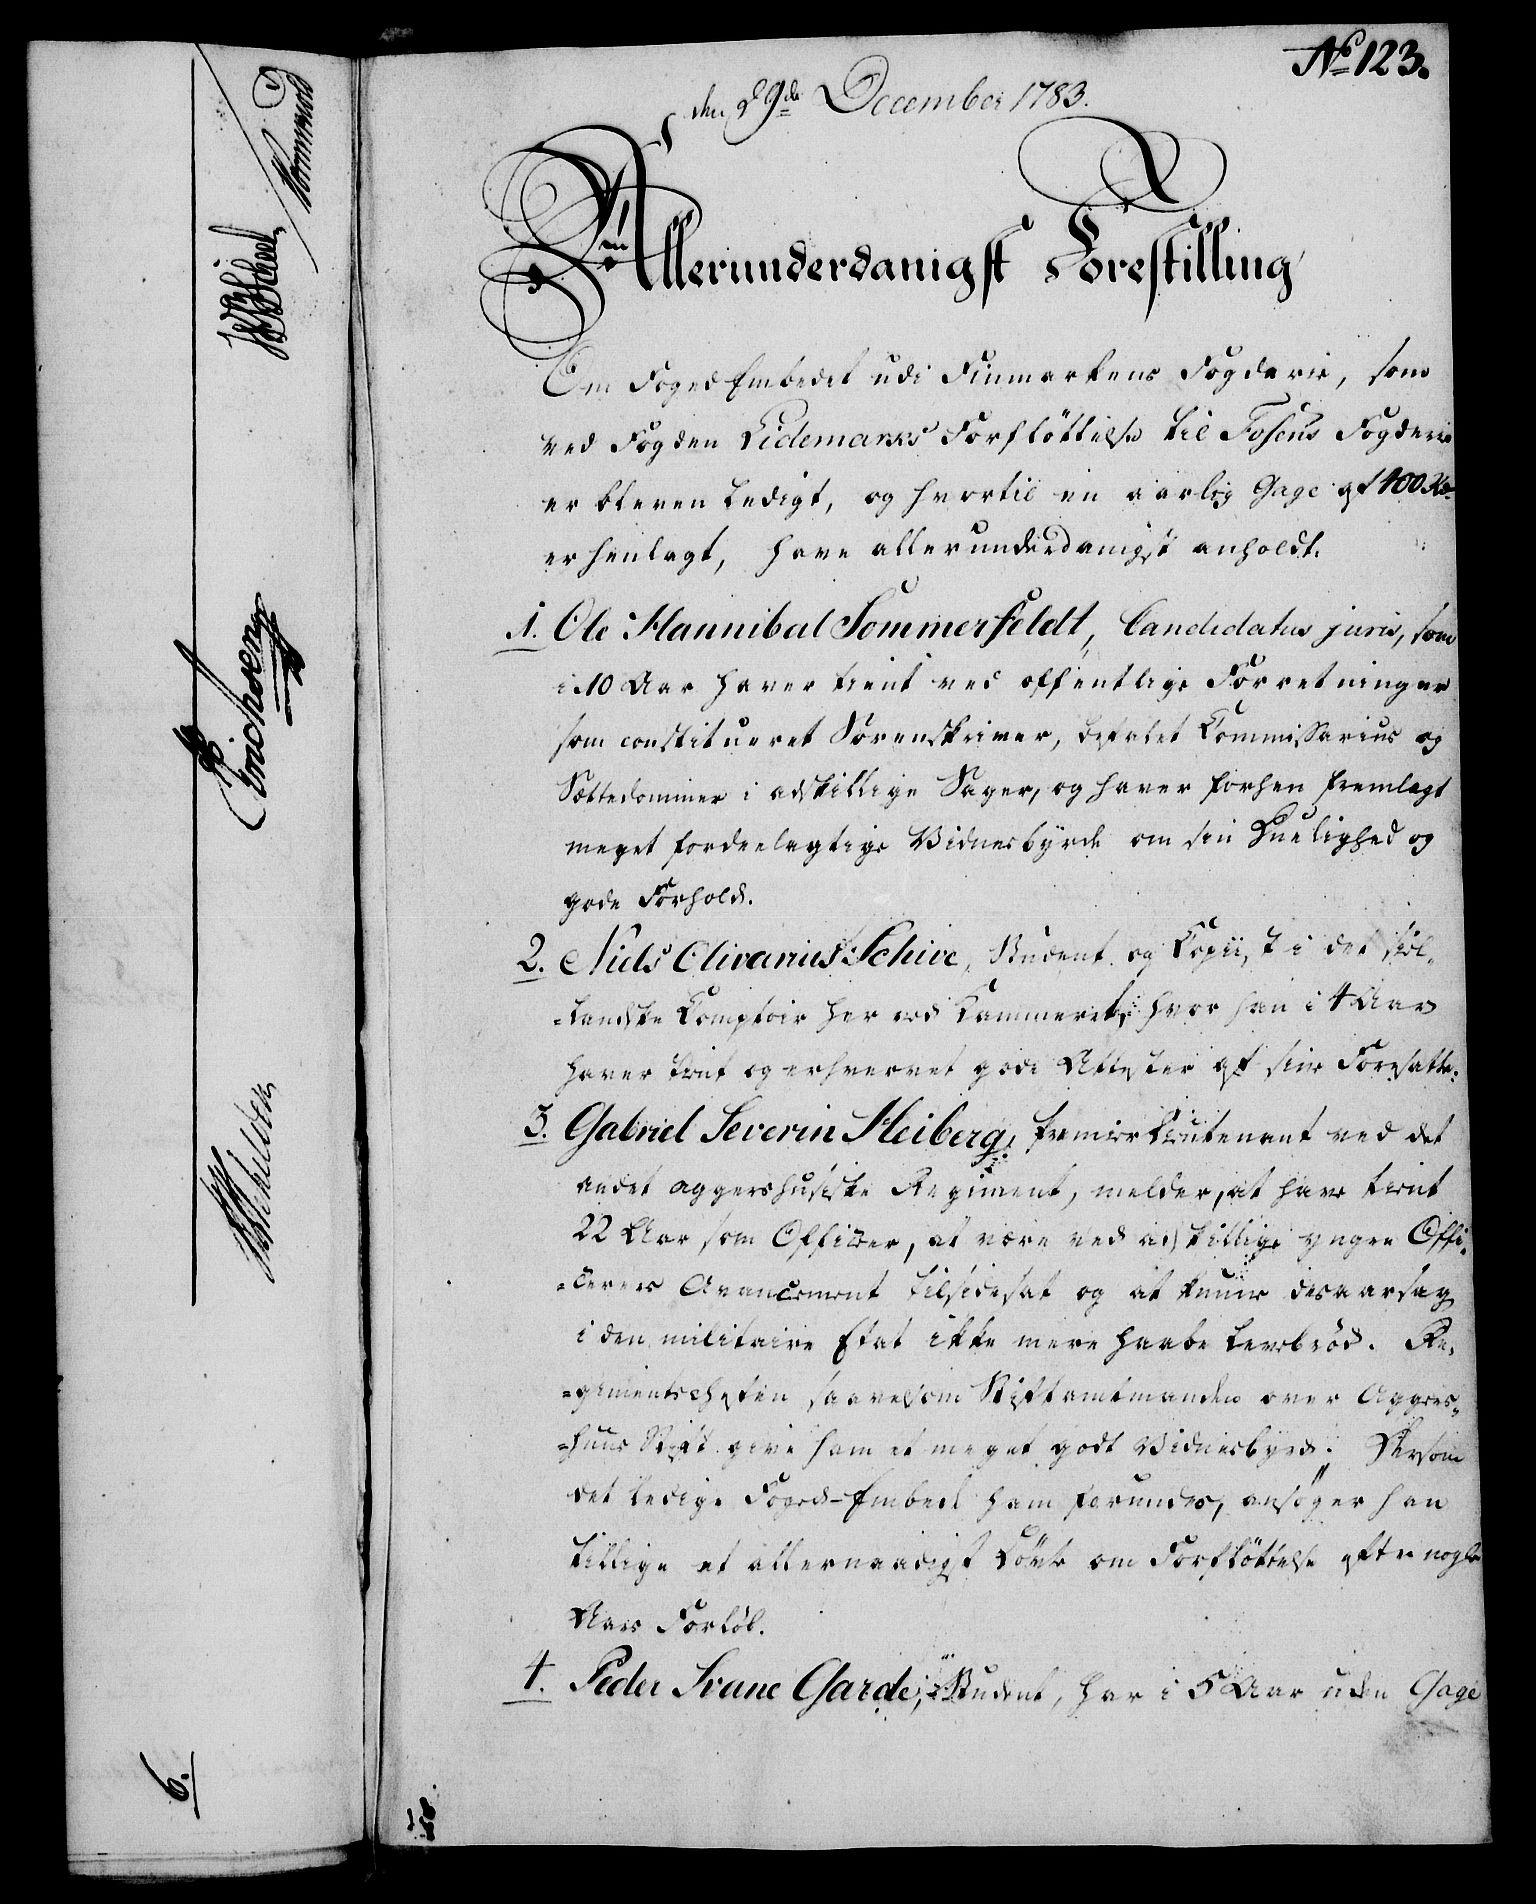 No 123.
den 29de December 1783.
Allerunderdanigst Forestilling
Om Foged Embedet udi Finmarkens Fogderie, som
ved Fogden Lidemarks Forflöttelse til Fosens Fogderie
er bleven ledigt, og hvortil en aarlig Gage af 400 Rd.
er henlagt, have allerunderdanigst anholdt.
1. Ole Hannibal Sommerfeldt, Candidatus juris, som
i 10 Aar haver tient ved offentlige Forretninger
som constitueret Sorenskriver, befalet Commissarius og
Sættedommer i adskillige Sager, og haver forhen fremlagt
meget fordeelagtige Vidnesbyrde om sin Duelighed og
gode Forhold.
2. Niels Olivarius Schive, Student og Copiist i det siæl-
-landske Comptoir her ved Kammeret, hvor han i 4 Aar
haver tient og erhvervet gode Attester af sine Foresatte.
3. Gabriel Severin Heiberg, Premier Lieutenant ved det
andet aggershusiske Regiment, melder, at have tient
22 Aar som Officer, at være ved adskillige yngre Offi-
-cerers Avancement tilsidesat og at kunne desaarsag
i den militaire Etat ikke mere haabe Levebröd. Re-
-gimentschefen saavelsom Stiftamtmanden over Aggers-
-huus Stift give ham et meget godt Vidnesbyrd. Dersom
det ledige Foged-Embede ham forundes, ansöger han
tillige et allernaadigst Löfte om Forflöttelse efter nogle
Aars Forlöb.
4. Peder Svane Garde, Student, har i 5 Aar uden Gage
Erichsen
6.